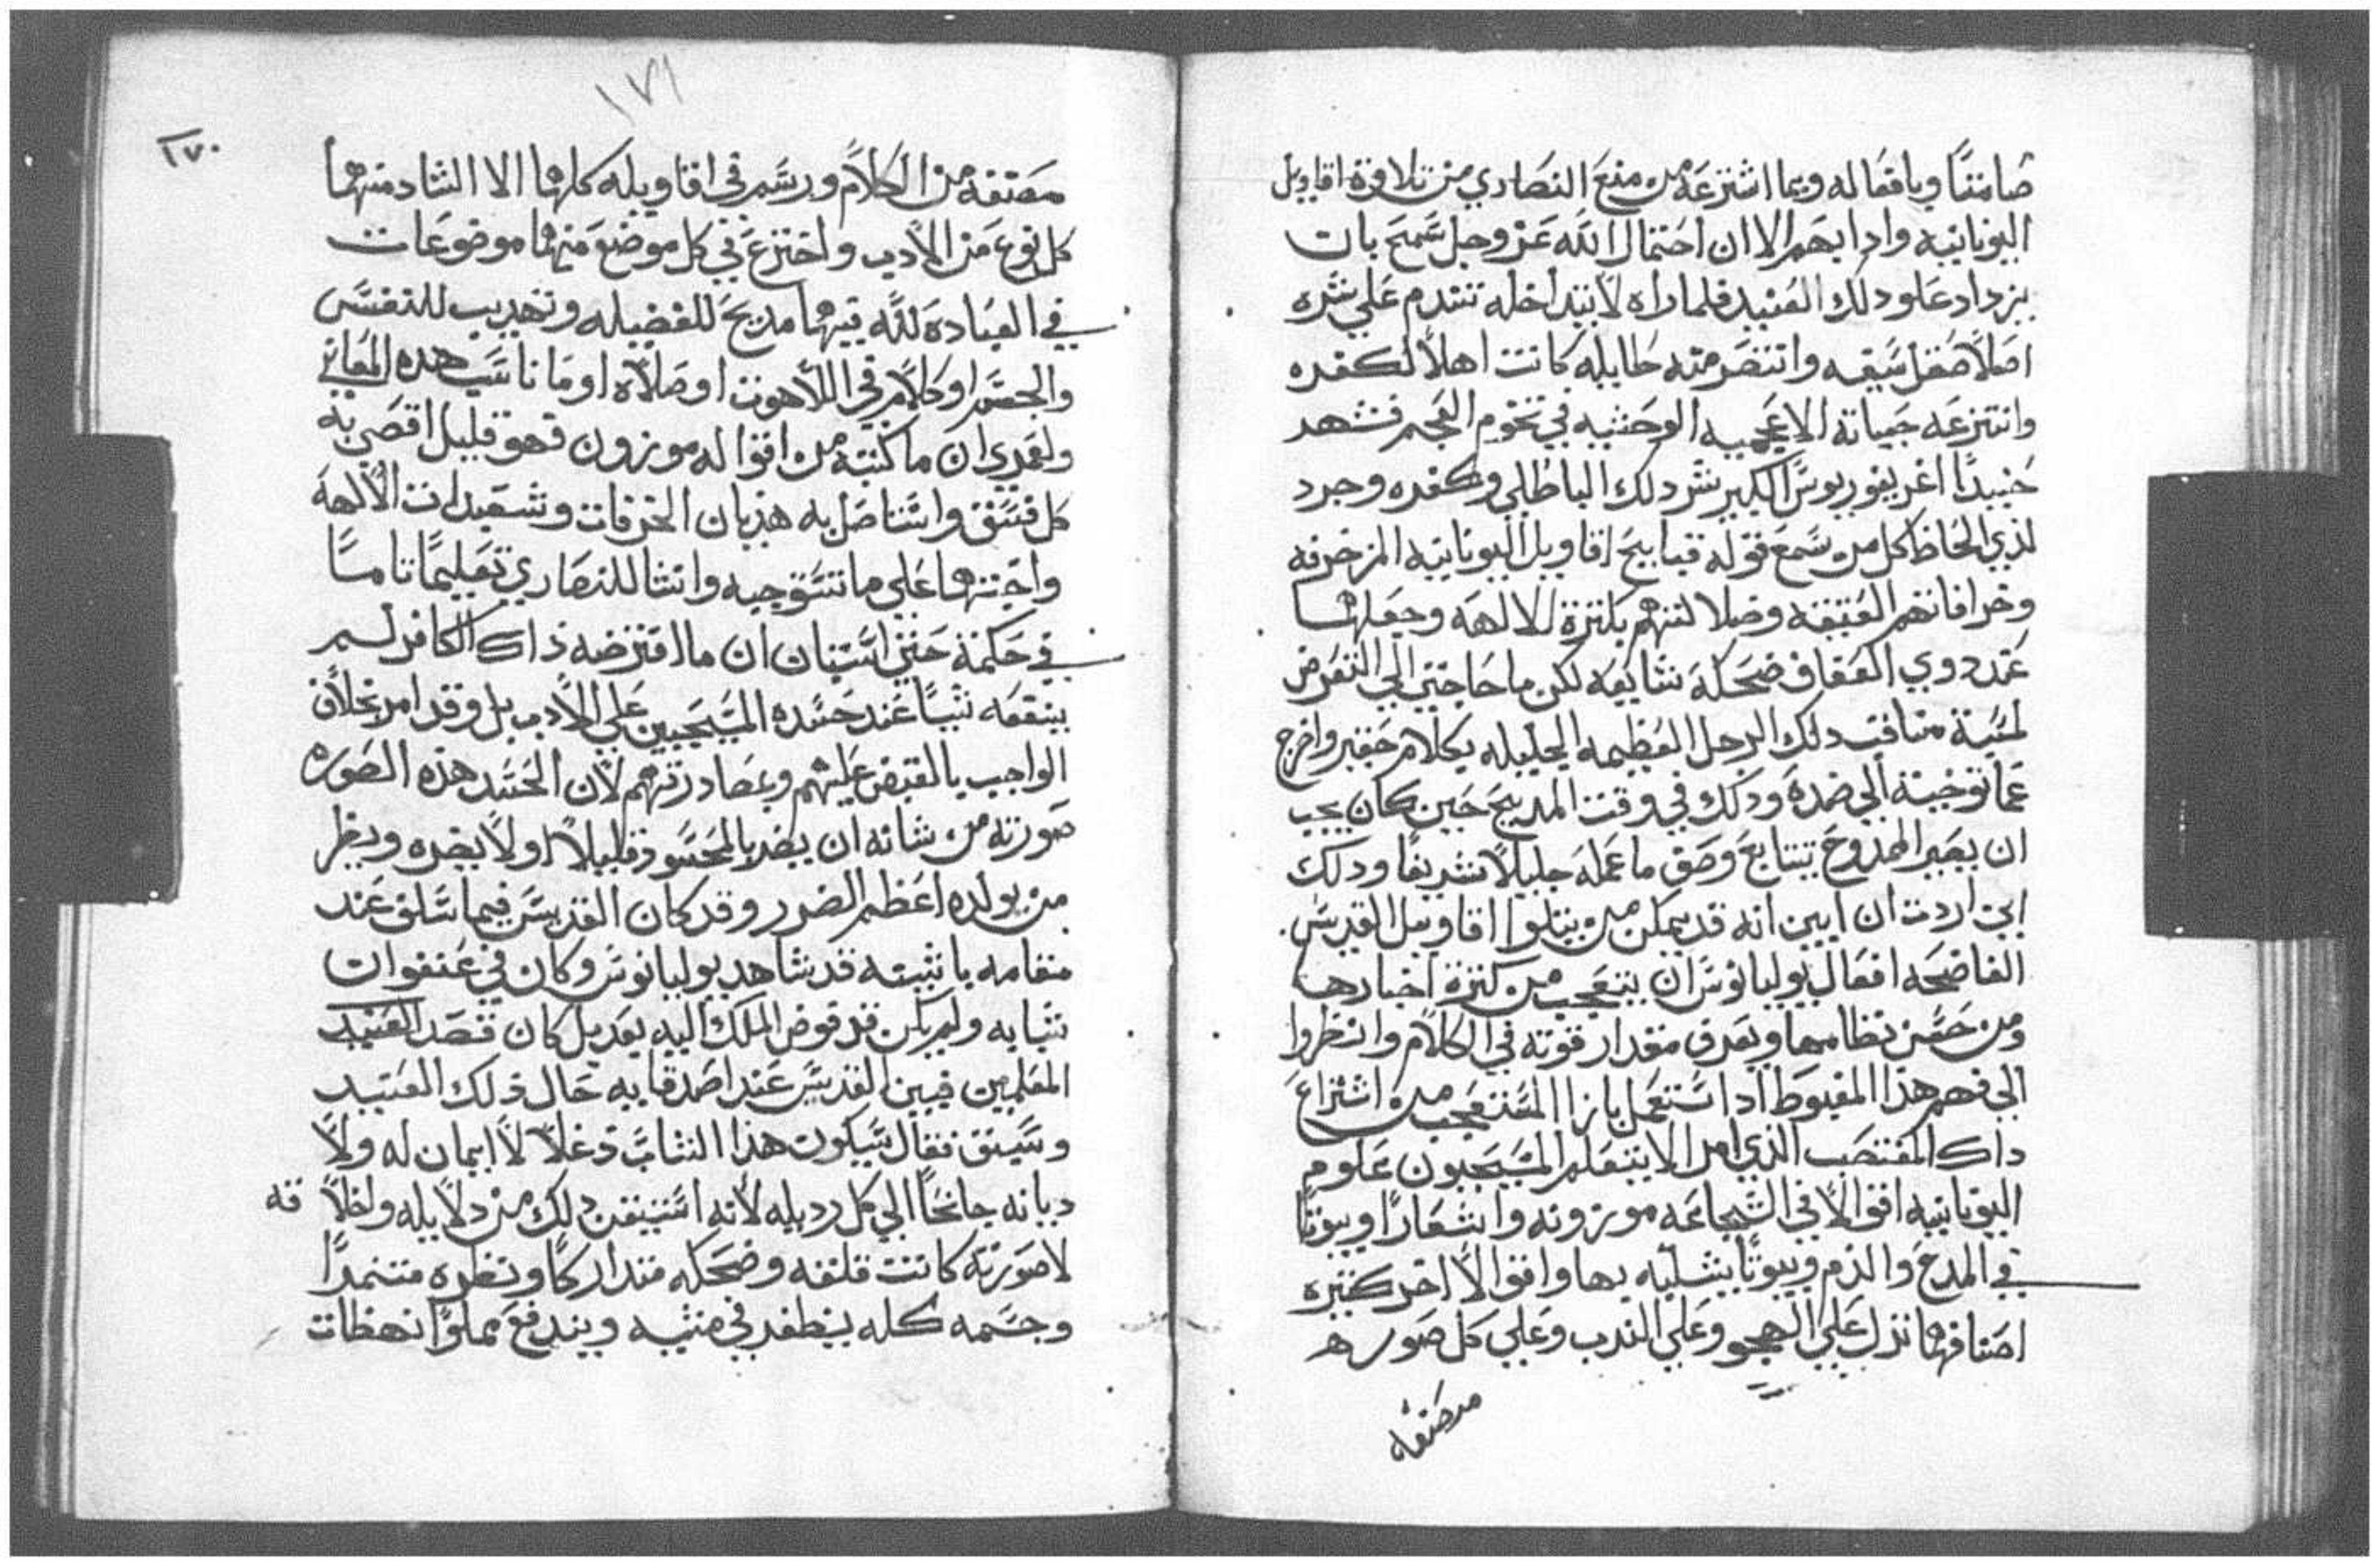 صامتًا وبافعاله وبما اشترعه من منع النصاري من تلاوة اقاويل
اليونانيه وادابهم الا ان احتمال الله عز وجل سمح بان
يزداد علو دلك العنيد فلما راه لا يتداخله تندم علي شره
اصلاً صقل سيفه وانتصر منه كانت اهلاً لكفره
وانتزعه الاعجميه الوحشيه في تخوم العجم فشهد
حينيدًا اغريغوريوس الكبير شر دلك الباطلي وكفره وجرد
لذي الحاظ كل من سمع قوله قبايح اقاويل اليونانيه المزخرفه
وخرافاتهم العتيقه وضلالتهم بكثرة الالهه وجعلها
عند دوي العفاف ضحكة شايعه لكن ما حاجتي الي التعرض
مناقب دلك الرجل العظيمه الجليله بكلام حقير واخرج
عما توخيته الي ضده ودلك في وقت المديح حين كان يجب
ان يصير الممدوح بتتابع وصف ما عمله جليلاً شريفًا ودلك
اني اردت ان ابين انه قد يمكن من يتلوا اقاويل القديس
الفاضحه افعال يوليانوس ان يتعجب من كثرة اخبارها
ومن حسن نظامها ويعرف مقدار قوته في الكلام وانظروا
الي فهم هذا المغبوط اذا استعمل بازا المتعجب من اشتراع
داك المغتصب الذي امر الا يتعلم المسيحيون علوم
اليونانيه اقوالاً في الشجاعه موزونه واشعارًا وبيوتًا
في المدح والذم وبيوتًا يشليه بها واقوالاً اخر كثيره
اصنافها تدل علي الهجو وعلي الندب وعلي كل صوره
مصنفه
١٧١
١٧٠
مصنفه من الكلام ورسم في اقاويله كلها الا الشاد منها
كل نوع من الادب واخترع في كل موضع منها موضوعات
في العباده لله فيها مديح للفضيله وتهديب للنفس
والجسم او كلام في اللاهوت او صلاه او ما ناسب هده المعاني
ولعمري ان ما كتبه من اقواله موزون فهو قليل اقصي به
كل فسق واستاصل به هذيان الخرفات وتسميات الالهه
علي ما تستوجبه وانشا للنصاري تعليمًا تامًا
في حكمة حتي استبان ان ما افترضه ذاك الكافر لم
ينفعه شيًا عند حسده المسيحيين علي الادب بل وقد امر بخلاف
الواجب بالقبض عليهم ومصادرتهم لان الحسد هذه الصوره
صورته من شانه ان يضر بالمحسود قليلاً او لا يضره ويضر
من يولده اعظم الضرر وقد كان القديس فيما سلف عند
مقامه باثينه قد شاهد يوليانوس وكان في عنفوان
شبابه ولم يكن قد فوض الملك اليه بعد بل كان قصد العنيد
المعلمين فبين القديس عند اصدقايه حال ذلك العنيد
وسبق فقال سيكون هذا الشاب دغلاً لا ايمان له ولا
ديانه جانحًا الي كل رديله لانه استيقن دلك من دلايله واخلاقه
لا صورته كانت قلقه وضحكه متداركًا ونظره متنمرًا
وجسمه كله يظفر في مشيه ويندفع مملوًا نهظات